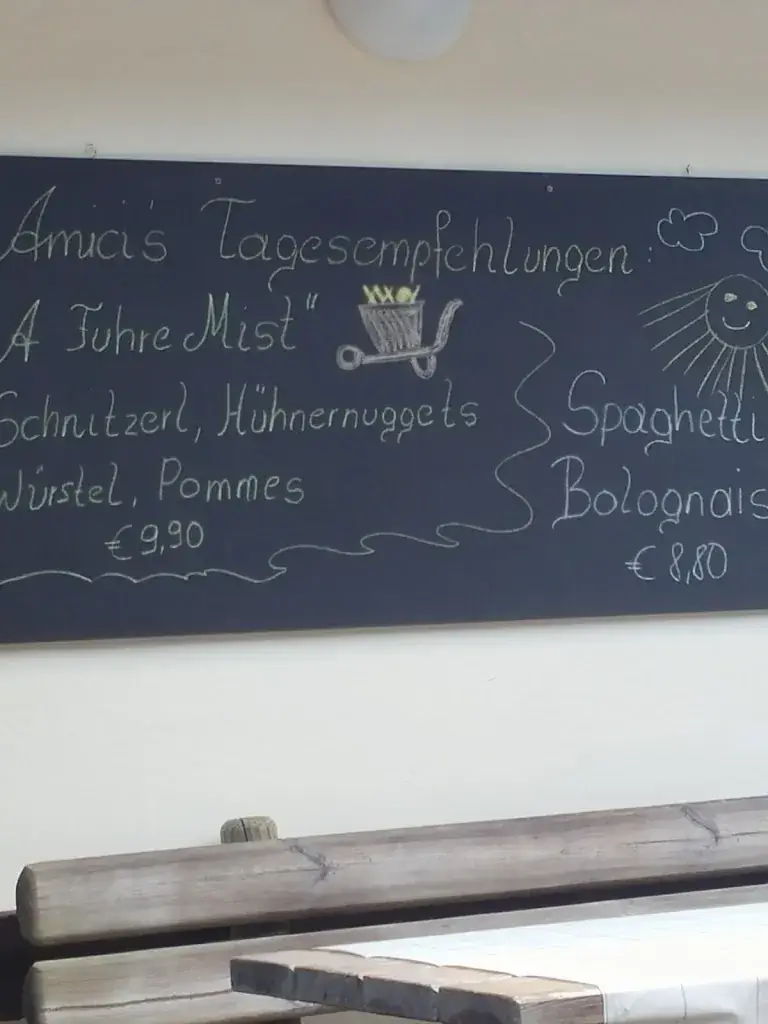 Amici's Tagesempfehlungen:
A Fuhre Mist"
Schnitzerl, Hühnernuggets
Würstel, Pommes
€9,90
Spaghetti
Bolognais
€ 8,80